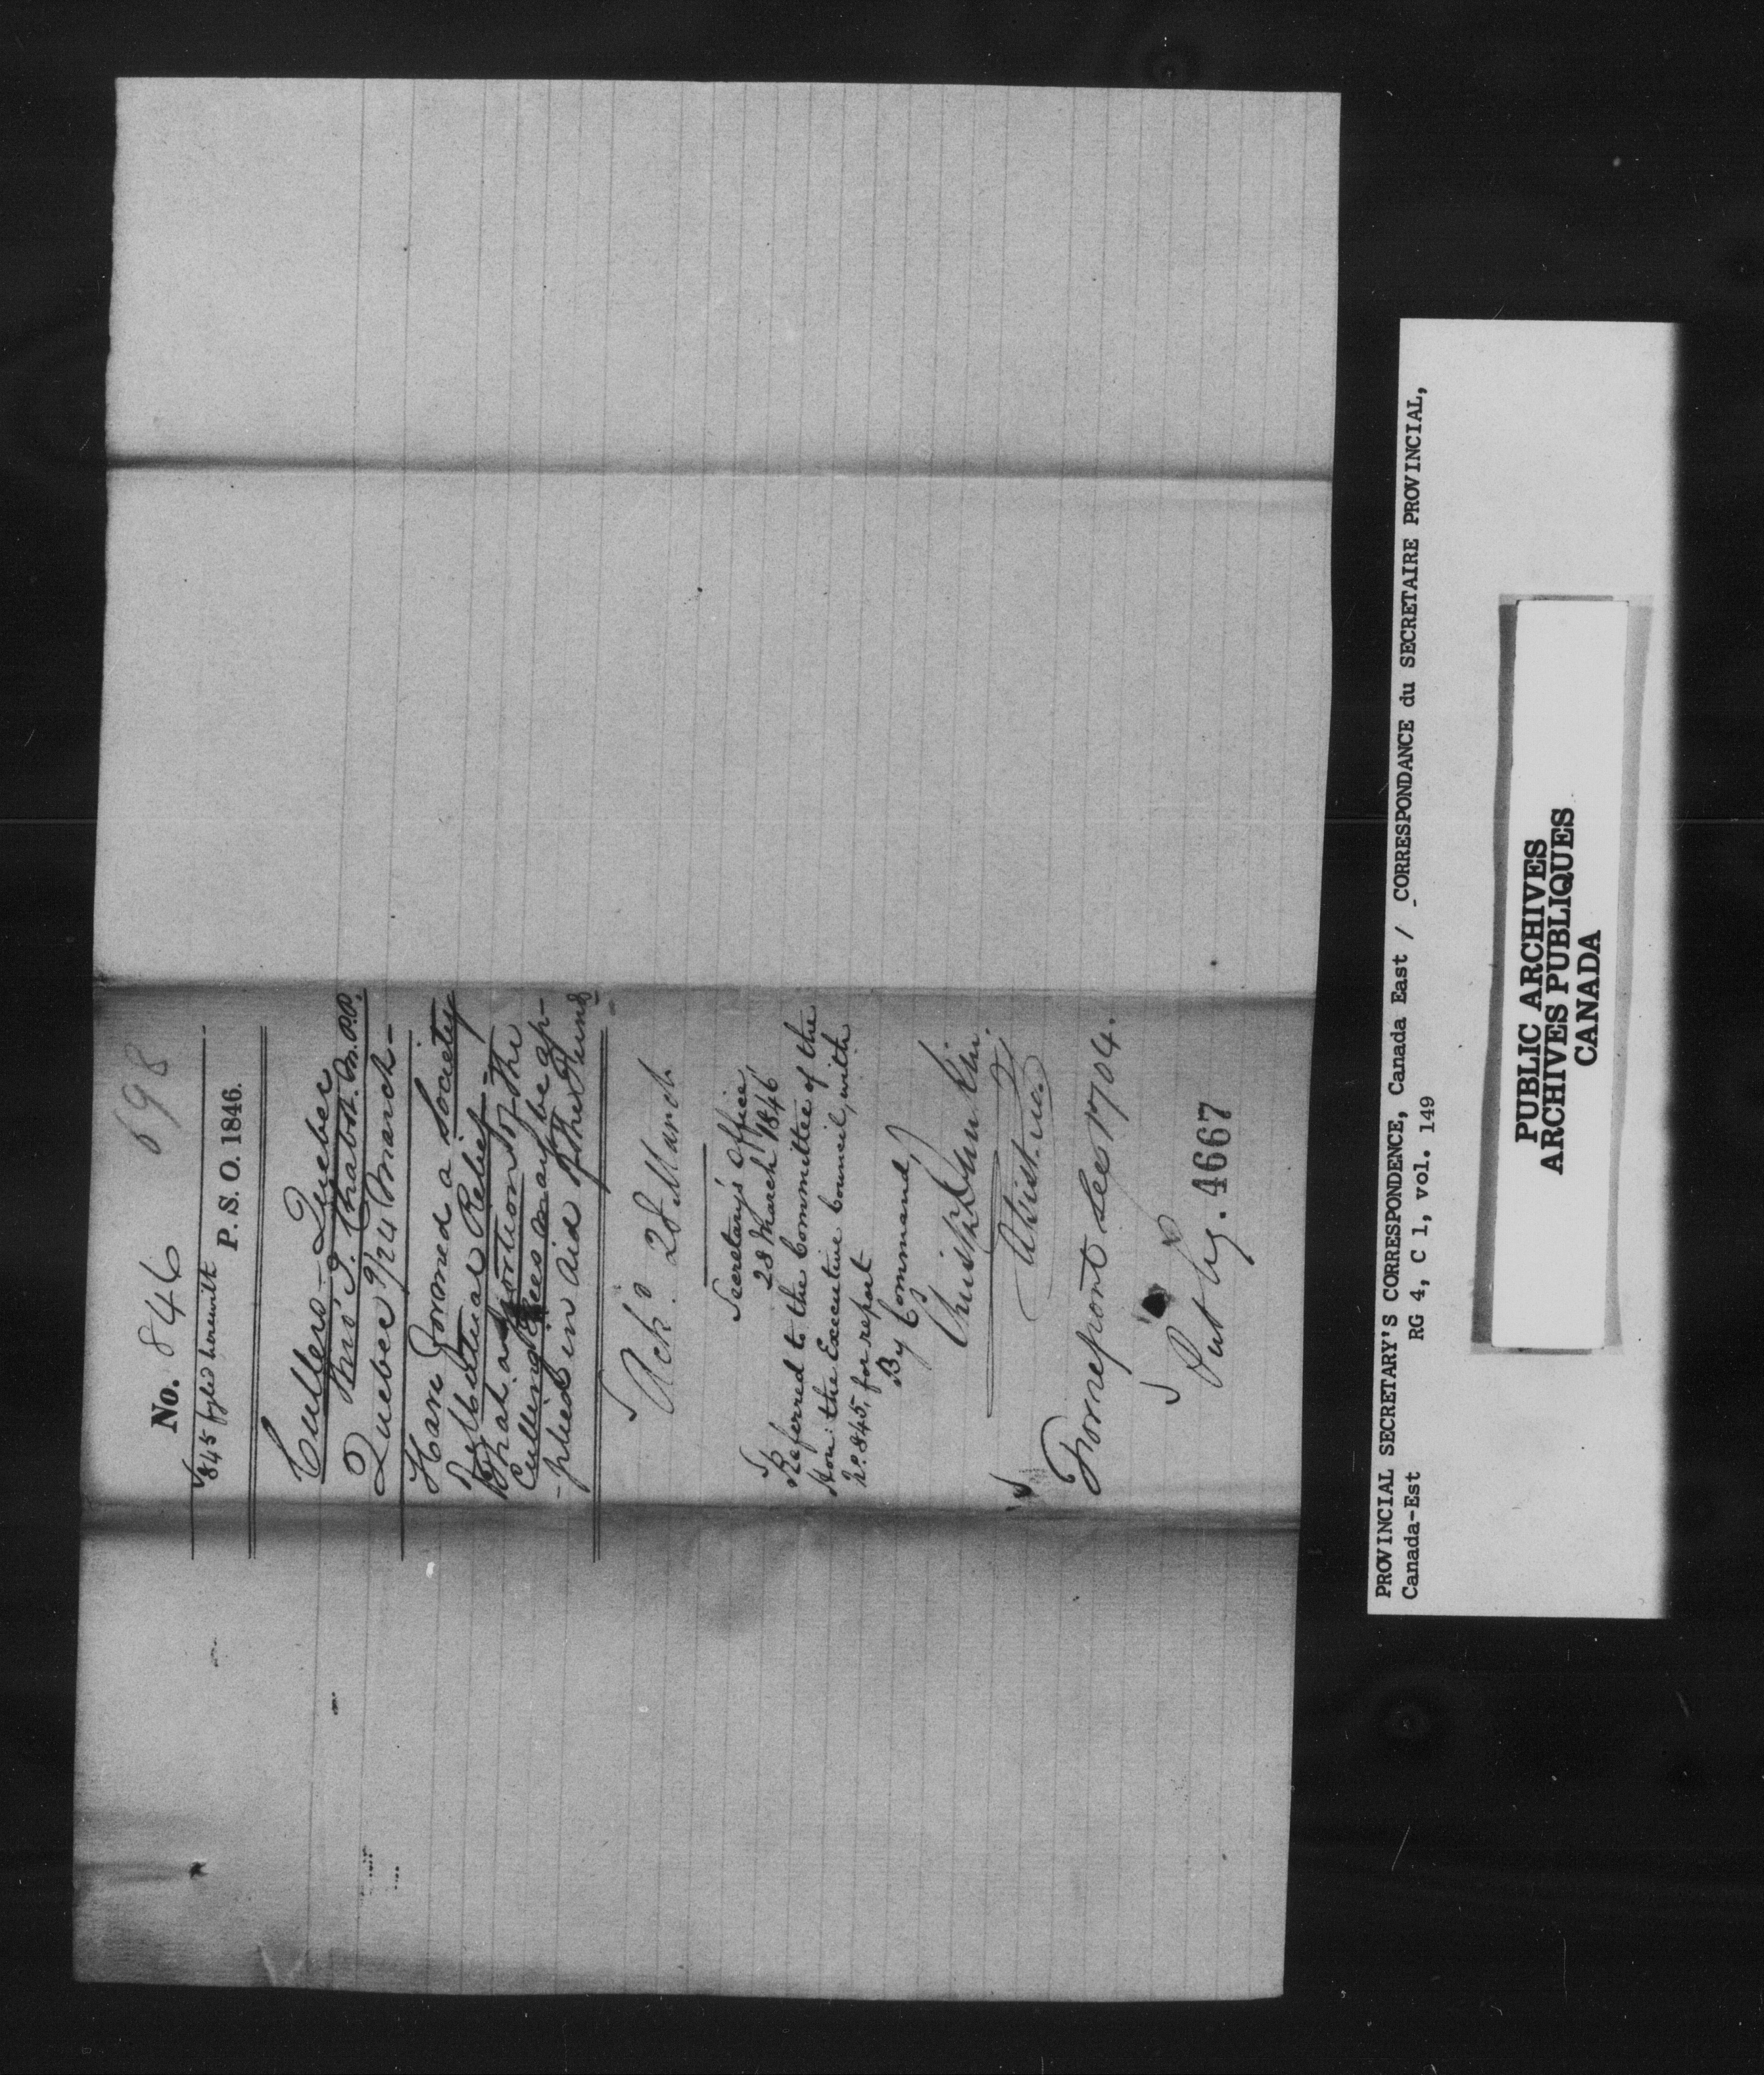 698
No. 846
845 fyled herewith
P. S. O. 1846.
Cullers - Quebec
Thro' J. Chabot. M.P.P.
Quebec 9/24 March -
Have formed a Society
for Mutual Relief -
That a portion of the
Culling Fees may be ap-
-plied in aid of the Fund
Ackd. 28 March
Secretary's Office
28 March 1846
Referred to the Committee of the
Hon: the Executive Council, with
No. 845, for report
By Command,
Christr. Dunkin.
Assist.
For report see 1704.
Put by.
4667
PROVINCIAL SECRETARY'S CORRESPONDENCE, Canada East / CORRESPONDANCE du SECRETAIRE PROVINCIAL,
Canada-Est RG 4, C 1, vol. 149
PUBLIC ARCHIVES
ARCHIVES PUBLIQUES
CANADA